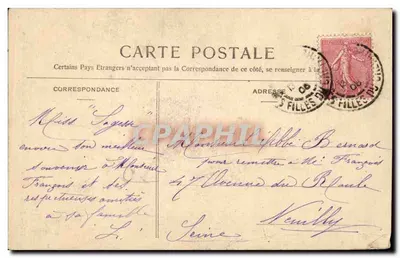 CARTE POSTALE
Certains Pays Etrangers n'acceptant pas la Correspondance de ce côté, se renseigner à la
CORRESPONDANCE
ADRESSE
Miss "Sagesse"
envoie son meilleur
souvenir à Monsieur
François et ses
respectueuses amitiés
à sa famille
L.
Monsieur l'Abbé Bernard
pour remettre à Mr François
47 Avenue du Roule
Neuilly
Seine
FILLES DU
FILLES DU